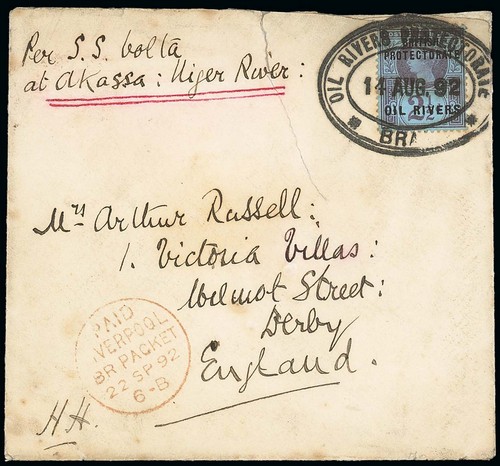 Per S.S. Volta
at Akassa: Niger River:
OIL RIVERS PROTECTORATE
BRITISH
PROTECTORATE
14 AUG. 92
OIL RIVERS
2½
BRA
Mrs Arthur Russell:
1. Victoria Villas:
Wilmot Street:
Derby
England.
PAID
LIVERPOOL
BR PACKET
22 SP 92
6-B
HH.